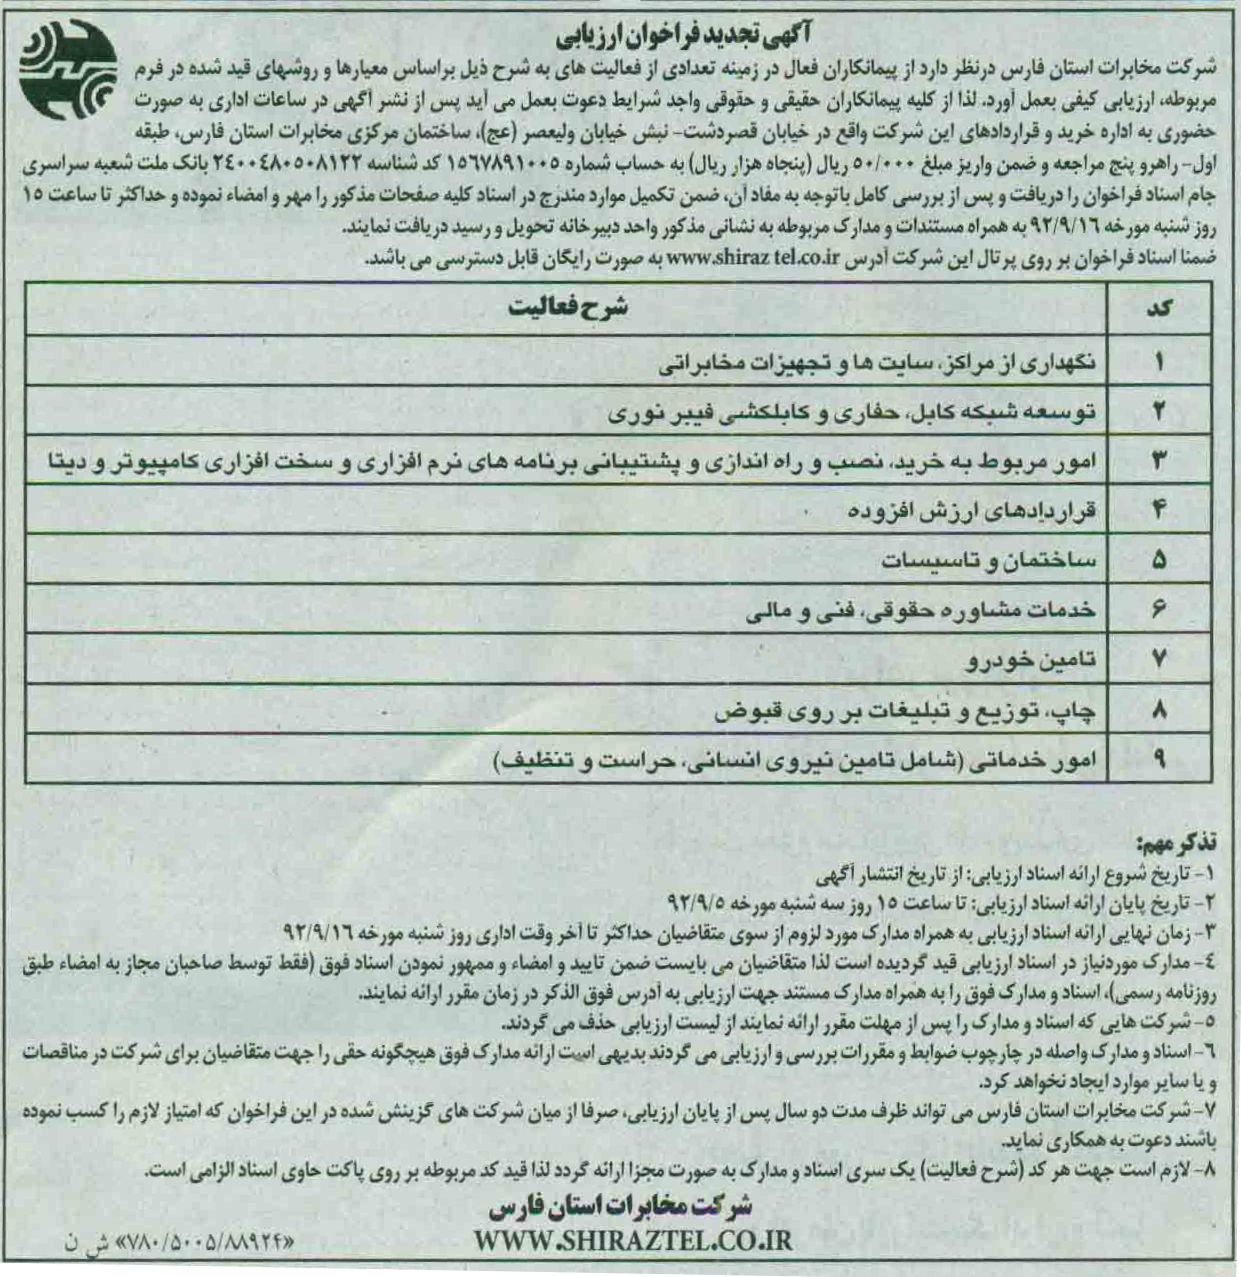 آگهی تجدید فراخوان ارزیابی
شرکت مخابرات استان فارس درنظر دارد از پیمانکاران فعال در زمینه تعدادی از فعالیت های به شرح ذیل براساس معیارها و روشهای قید شده در فرم
مربوطه، ارزیابی کیفی بعمل آورد. لذا از کلیه پیمانکاران حقیقی و حقوقی واجد شرایط دعوت بعمل می آید پس از نشر آگهی در ساعات اداری به صورت
حضوری به اداره خرید و قراردادهای این شرکت واقع در خیابان قصردشت- نبش خیابان ولیعصر (عج)، ساختمان مرکزی مخابرات استان فارس، طبقه
اول- راهرو پنج مراجعه و ضمن واریز مبلغ ۵۰/۰۰۰ ریال (پنجاه هزار ریال) به حساب شماره ۱۵۶۷۸۹۱۰۰۵ کد شناسه ۲۴۰۰۴۸۰۵۰۸۱۲۲ بانک ملت شعبه سراسری
جام اسناد فراخوان را دریافت و پس از بررسی کامل باتوجه به مفاد آن، ضمن تکمیل موارد مندرج در اسناد کلیه صفحات مذکور را مهر و امضاء نموده و حداکثر تا ساعت ۱۵
روز شنبه مورخه ۹۲/۹/۱۶ به همراه مستندات و مدارک مربوطه به نشانی مذکور واحد دبیرخانه تحویل و رسید دریافت نمایند.
ضمنا اسناد فراخوان بر روی پرتال این شرکت آدرس www.shiraz tel.co.ir به صورت رایگان قابل دسترسی می باشد.
کد شرح فعالیت
۱ نگهداری از مراکز، سایت ها و تجهیزات مخابراتی
۲ توسعه شبکه کابل، حفاری و کابلکشی فیبر نوری
۳ امور مربوط به خرید، نصب و راه اندازی و پشتیبانی برنامه های نرم افزاری و سخت افزاری کامپیوتر و دیتا
۴ قراردادهای ارزش افزوده
۵ ساختمان و تاسیسات
۶ خدمات مشاوره حقوقی، فنی و مالی
۷ تامین خودرو
۸ چاپ، توزیع و تبلیغات بر روی قبوض
۹ امور خدماتی (شامل تامین نیروی انسانی، حراست و تنظیف)
تذکر مهم:
۱- تاریخ شروع ارائه اسناد ارزیابی: از تاریخ انتشار آگهی
۲- تاریخ پایان ارائه اسناد ارزیابی: تا ساعت ۱۵ روز سه شنبه مورخه ۹۲/۹/۵
۳- زمان نهایی ارائه اسناد ارزیابی به همراه مدارک مورد لزوم از سوی متقاضیان حداکثر تا آخر وقت اداری روز شنبه مورخه ۹۲/۹/۱۶
۴- مدارک موردنیاز در اسناد ارزیابی قید گردیده است لذا متقاضیان می بایست ضمن تایید و امضاء و ممهور نمودن اسناد فوق (فقط توسط صاحبان مجاز به امضاء طبق
روزنامه رسمی)، اسناد و مدارک فوق را به همراه مدارک مستند جهت ارزیابی به آدرس فوق الذکر در زمان مقرر ارائه نمایند.
۵- شرکت هایی که اسناد و مدارک را پس از مهلت مقرر ارائه نمایند از لیست ارزیابی حذف می گردند.
۶- اسناد و مدارک واصله در چارچوب ضوابط و مقررات بررسی و ارزیابی می گردند بدیهی است ارائه مدارک فوق هیچگونه حقی را جهت متقاضیان برای شرکت در مناقصات
و یا سایر موارد ایجاد نخواهد کرد.
۷- شرکت مخابرات استان فارس می تواند ظرف مدت دو سال پس از پایان ارزیابی، صرفا از میان شرکت های گزینش شده در این فراخوان که امتیاز لازم را کسب نموده
باشند دعوت به همکاری نماید.
۸- لازم است جهت هر کد (شرح فعالیت) یک سری اسناد و مدارک به صورت مجزا ارائه گردد لذا قید کد مربوطه بر روی پاکت حاوی اسناد الزامی است.
شرکت مخابرات استان فارس
WWW.SHIRAZTEL.CO.IR
«۷۸۰/۵۰۰۵/۸۸۹۲۴» ش ن